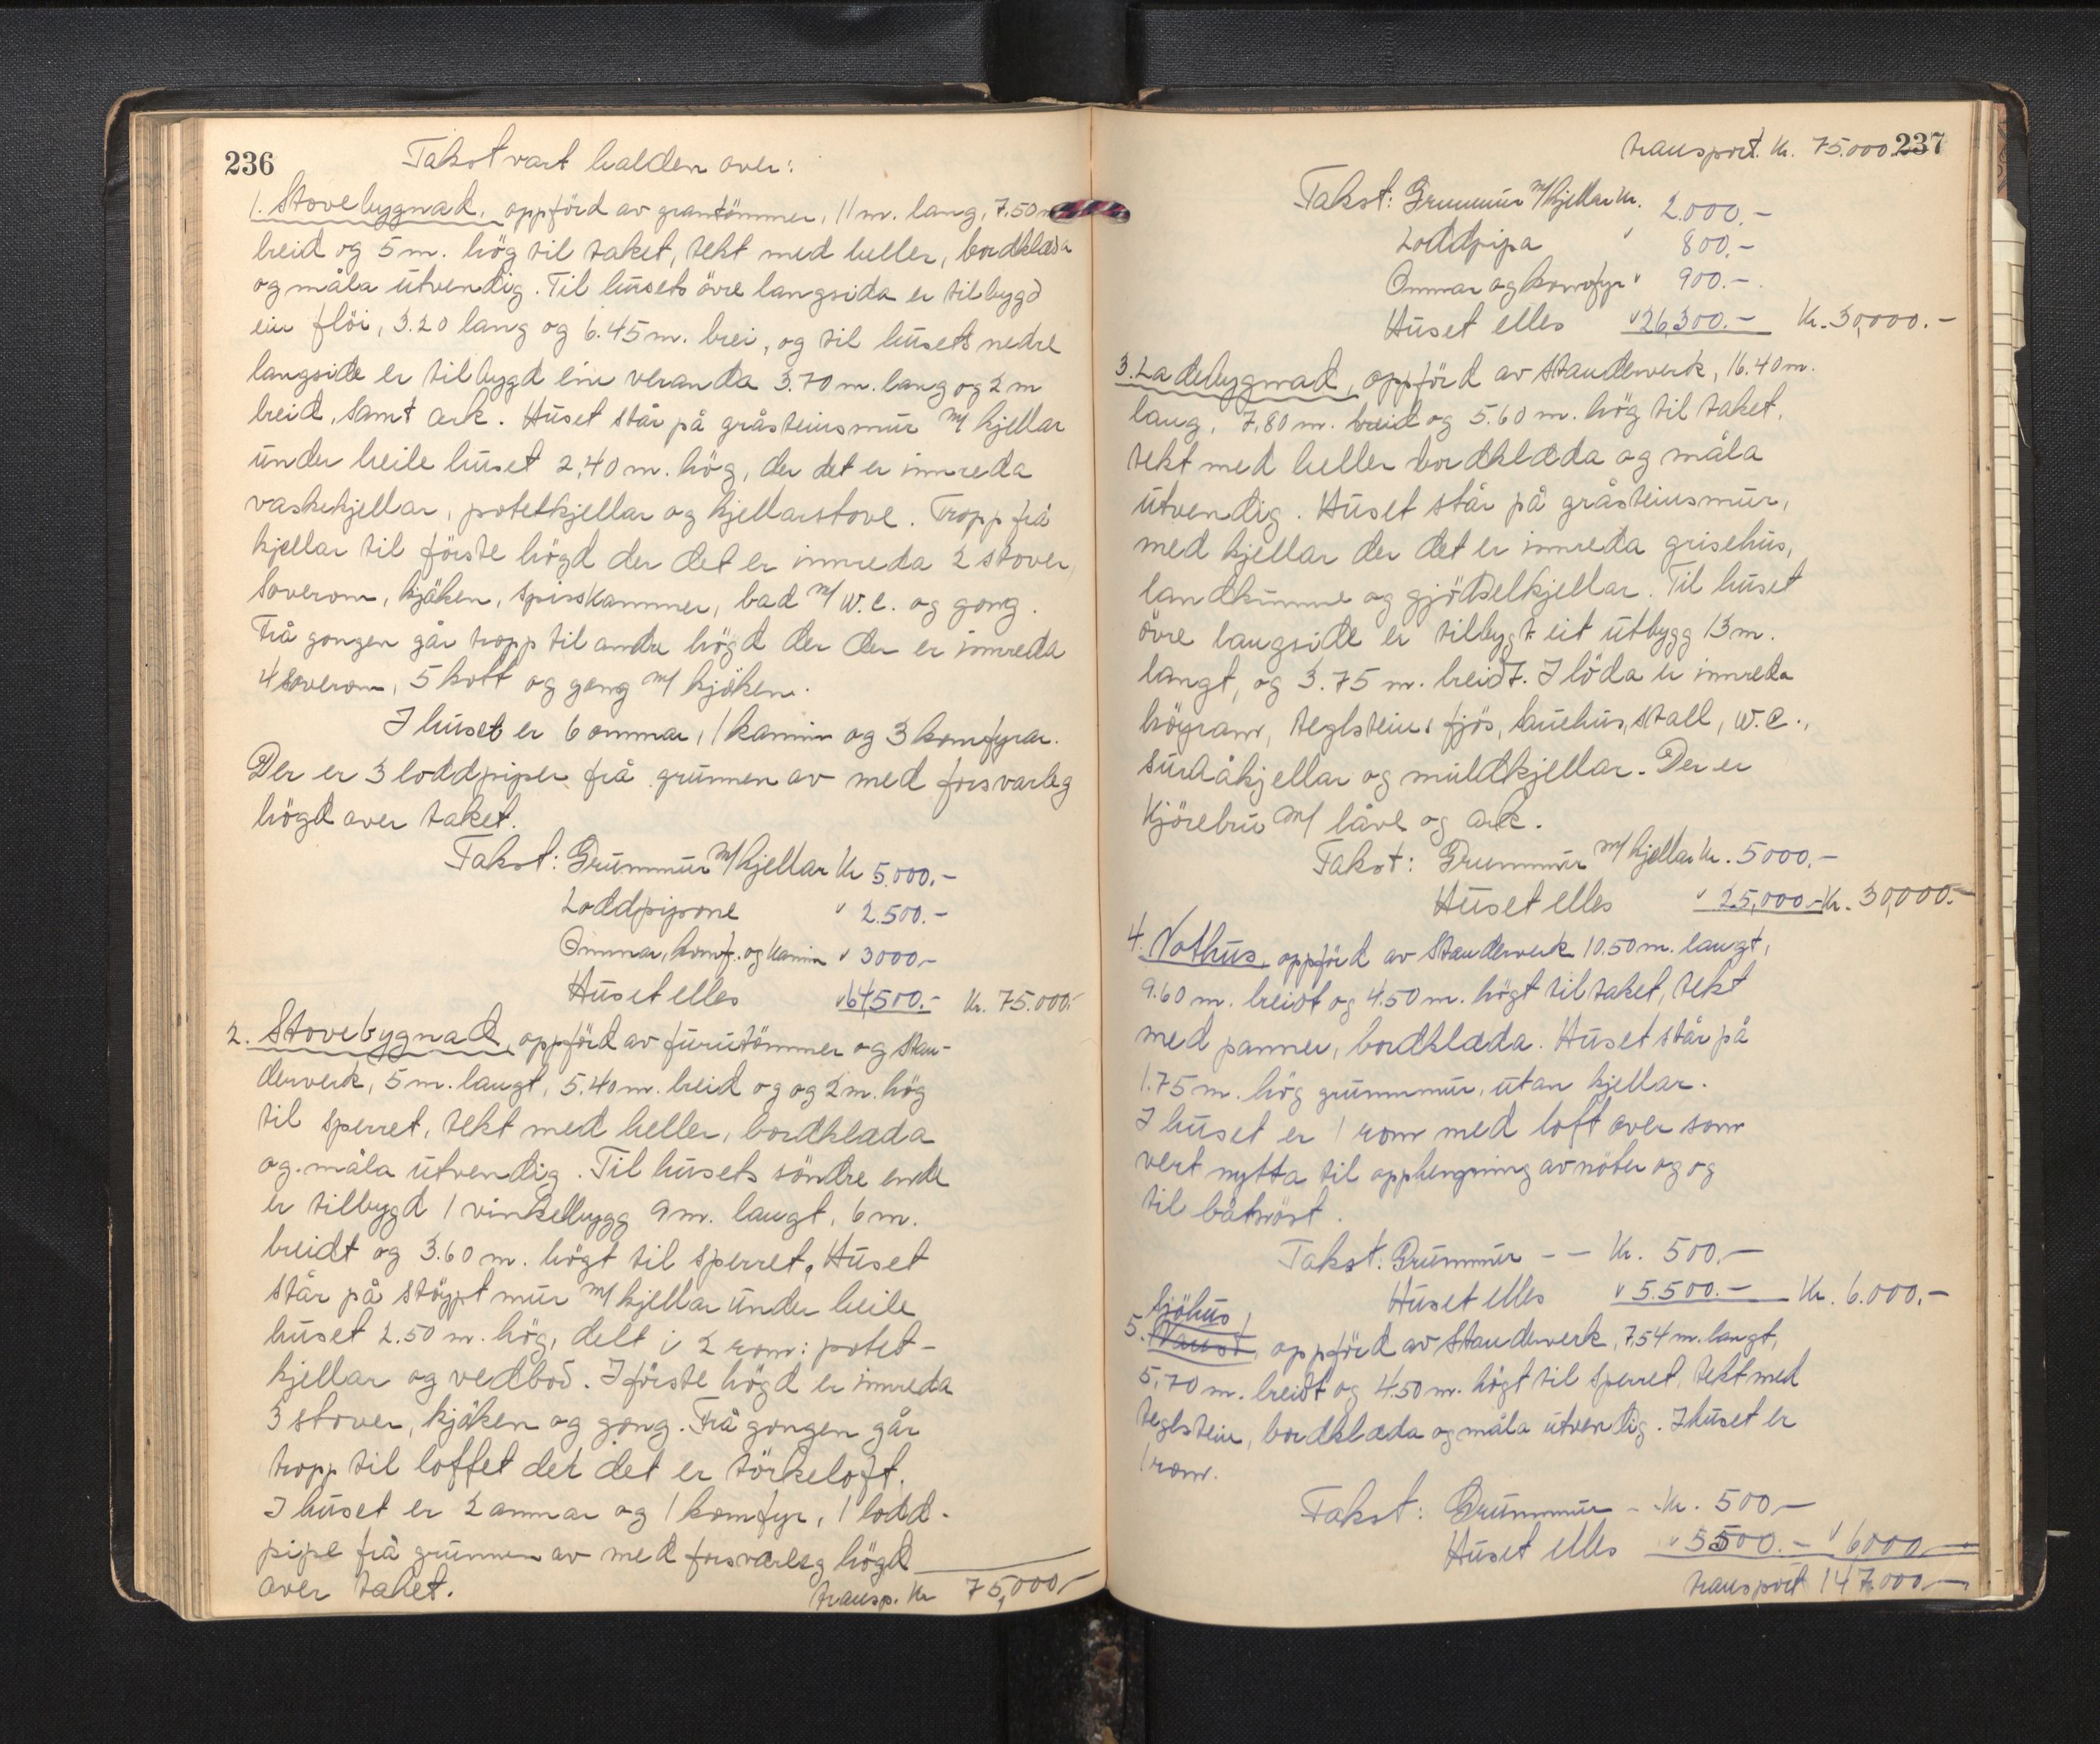 236
Takst vart halden over:
1. Stovebygnad, oppförd av grantömmer, 11 m. lang, 7.50 m
breid og 5 m. hög til taket, tekt med heller, bordklæda
og måla utvendig. Til husets övre langsida er tilbygd
ein flöi, 3.20 lang og 6.45 m. brei, og til husets nedre
langside er tilbygd ein veranda 3.70 m. lang og 2 m
breid, samt ark. Huset står på gråsteinsmur m/ kjellar
under heile huset 2,40 m. hög, der det er innreda
vaskekjellar, potetkjellar og kjellarstove. Tropp frå
kjellar til förste högd der det er innreda 2 stover,
soverom, kjöken, spisskammer, bad m/ W.C. og gong.
Frå gongen går tropp til andre högd der der er innreda
4 soverom, 5 kott og gong m/ kjöken.
I huset er 6 omnar, 1 kamin og 3 komfyrar.
Der er 3 loddpiper frå grunnen av med forsvarleg
högd over taket.
Takst: Grunnmur m/ kjellar Kr 5.000.-
Loddpipone " 2.500.-
Omnar, komf. og kamin " 3000-
Huset elles " 64,500.- Kr. 75.000.-
2. Stovebygnad, oppförd av furutömmer og stan-
derverk, 5 m. langt, 5.40 m. breid og og 2 m. hög
til sperret, tekt med heller, bordklæda
og måla utvendig. Til husets söndre ende
er tilbygd 1 vinkelbygg 9 m. langt, 6 m.
breidt og 3.60 m. högt til sperret, Huset
står på stöypt mur m/ kjellar under heile
huset 2.50 m. hög, delt i 2 rom: potet-
kjellar og vedbod. I förste högd er innreda
3 stover, kjöken og gong. Frå gongen går
tropp til loftet der det er törkeloft.
I huset er 2 omnar og 1 komfyr, 1 lodd-
pipe frå grunnen av med forsvarleg högd
over taket.
transp. Kr 75,000-
237
transport. Kr. 75.000
Takst: Grunnmur m/ kjellar Kr. 2.000.-
Loddpipa " 800.-
Omnar og komfyr " 900.-
Huset elles " 26,300.- Kr. 30,000.-
3. Ladebygnad, oppförd av standerverk, 16.40 m.
lang, 7,80 m. breid og 5.60 m. hög til taket,
tekt med heller bordklæda og måla
utvendig. Huset står på gråsteinsmur,
med kjellar der det er innreda grisehus,
landkumme og gjödselkjellar. Til huset
övre langside er tilbygt eit utbygg 13 m.
langt, og 3.75 m. breidt. I löda er innreda
höyrom, teglsteins fjös, sauehus, stall, W.C.,
surhåkjellar og muldkjellar. Der er
kjörebru m/ låve og ark.
Takst: Grunnmur m/ kjellar Kr. 5000.-
Huset elles " 25,000.- Kr. 30,000.-
4. Nothus, oppförd av standerverk 10.50 m. langt,
9.60 m. breidt og 4.50 m. högt til taket, tekt
med panner, bordklæda. Huset står på
1.75 m. hög grunnmur, utan kjellar.
I huset er 1 rom med loft over som
vert nytta til opphengning av nöter og og
til båtnöst.
Takst: Grunnmur - - Kr. 500.-
Huset elles " 5.500.- Kr. 6.000.-
Sjöhus,
5. Naust, oppförd av standerverk, 7.54 m. langt,
5.70 m. breidt og 4.50 m. högt til sperret, tekt med
teglstein, bordklæda og måla utvendig. I huset er
1 rom.
Takst: Grunnmur - Kr. 500-
Huset elles " 5500.- " 6000-
transport 147.000-